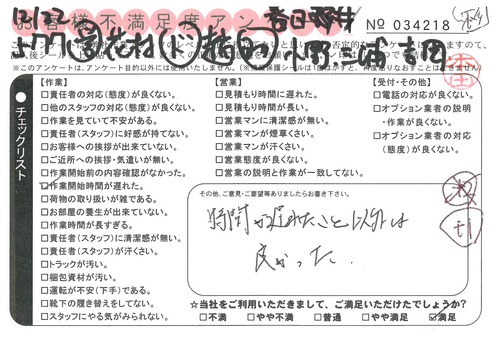 12/22
お客様不満足度アン
No 034218
※このアンケートは、アンケート目的以外には使用いたしません。
チェックリスト
【作業】
□責任者の対応(態度)が良くない。
□他のスタッフの対応(態度)が良くない。
□作業を見ていて不安がある。
□責任者(スタッフ)に好感が持てない。
□お客様への挨拶が出来ていない。
□ご近所への挨拶・気遣いが無い。
□作業開始前の内容確認がなかった。
☑作業開始時間が遅れた。
□荷物の取り扱いが雑である。
□お部屋の養生が出来ていない。
□作業時間が長すぎる。
□責任者(スタッフ)に清潔感が無い。
□責任者(スタッフ)が汗くさい。
□トラックが汚い。
□梱包資材が汚い。
□運転が不安(下手)である。
□靴下の履き替えをしてない。
□スタッフにやる気がみられない。
【営業】
□見積もり時間に遅れた。
□見積もり時間が長い。
□営業マンに清潔感が無い。
□営業マンが煙草くさい。
□営業マンが汗くさい。
□営業態度が良くない。
□営業の説明と作業が一致してない。
【受付・その他】
□電話の対応が良くない。
□オプション業者の説明
・作業が良くない。
□オプション業者の対応
(態度)が良くない。
その他、ご意見・ご要望等ありましたらお書き下さい。
時間が遅れたこと以外は
良かった。
☆当社をご利用いただきまして、ご満足いただけたでしょうか?
□不満 □やや不満 □普通 □やや満足 ☑満足